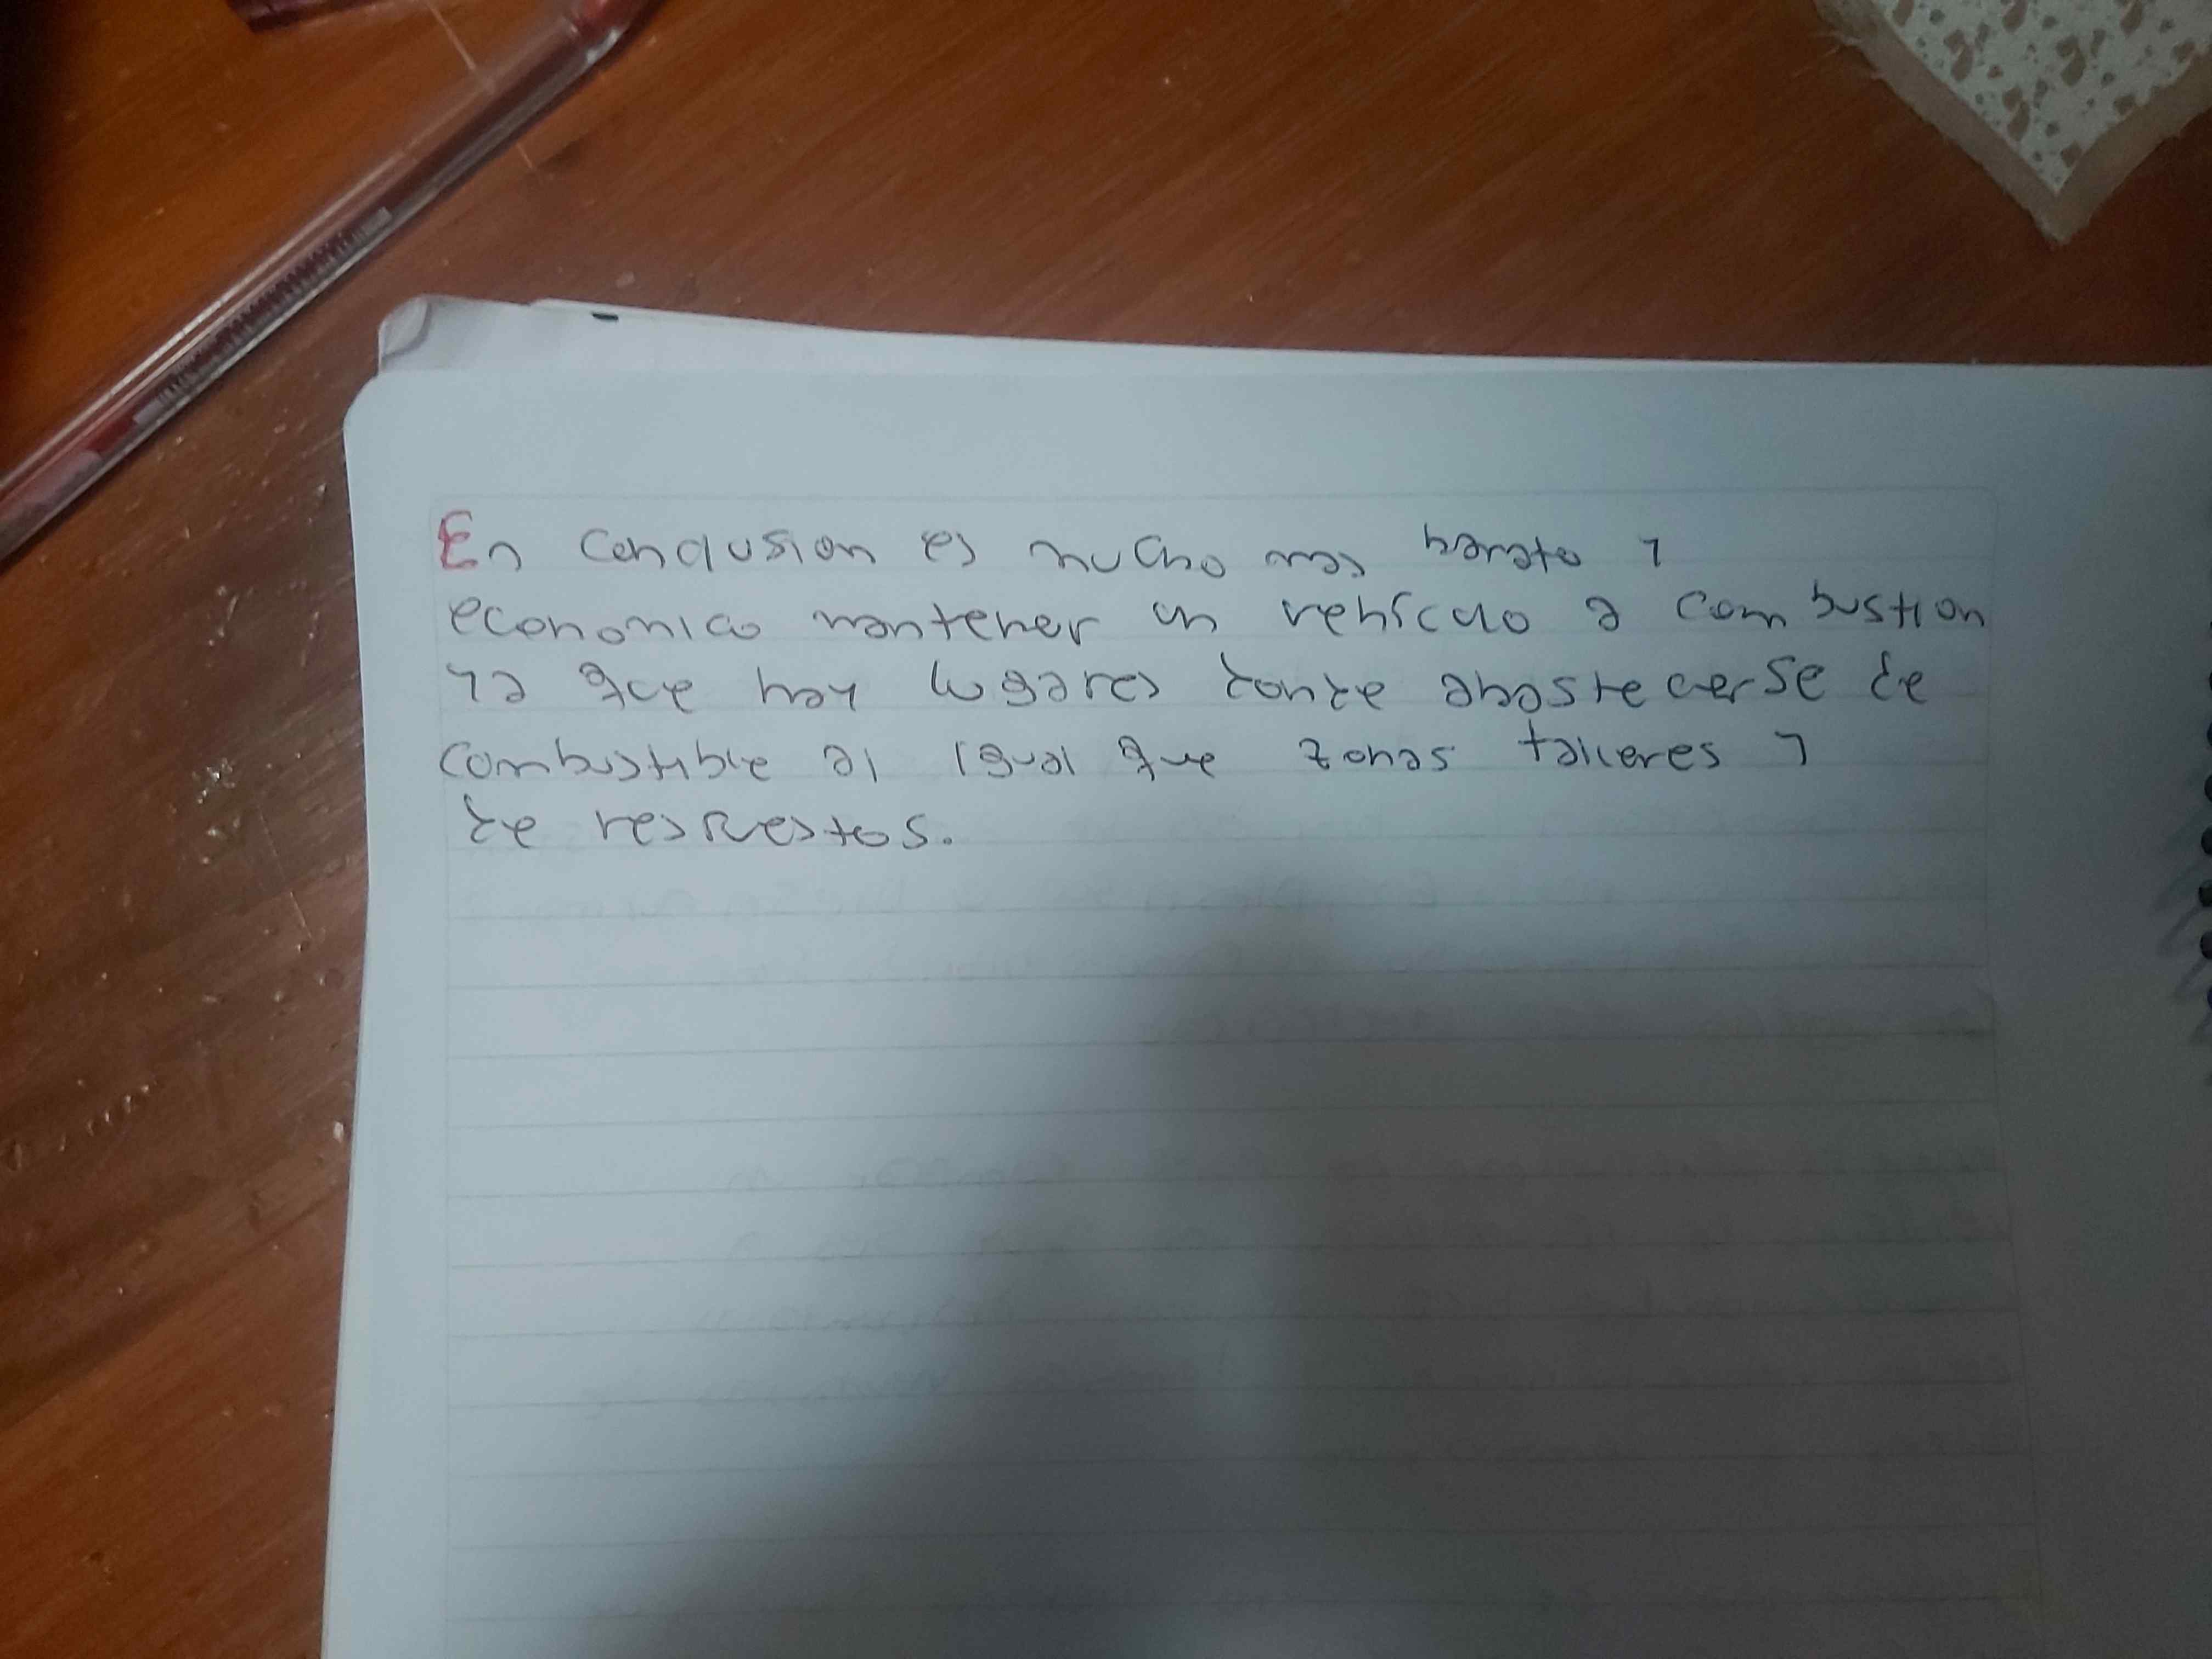 En conclusion es mucho mas barato y
economico mantener un vehículo a combustion
ya que hay lugares donde abastecerse de
combustible al igual que zonas talleres y
de respuestos.